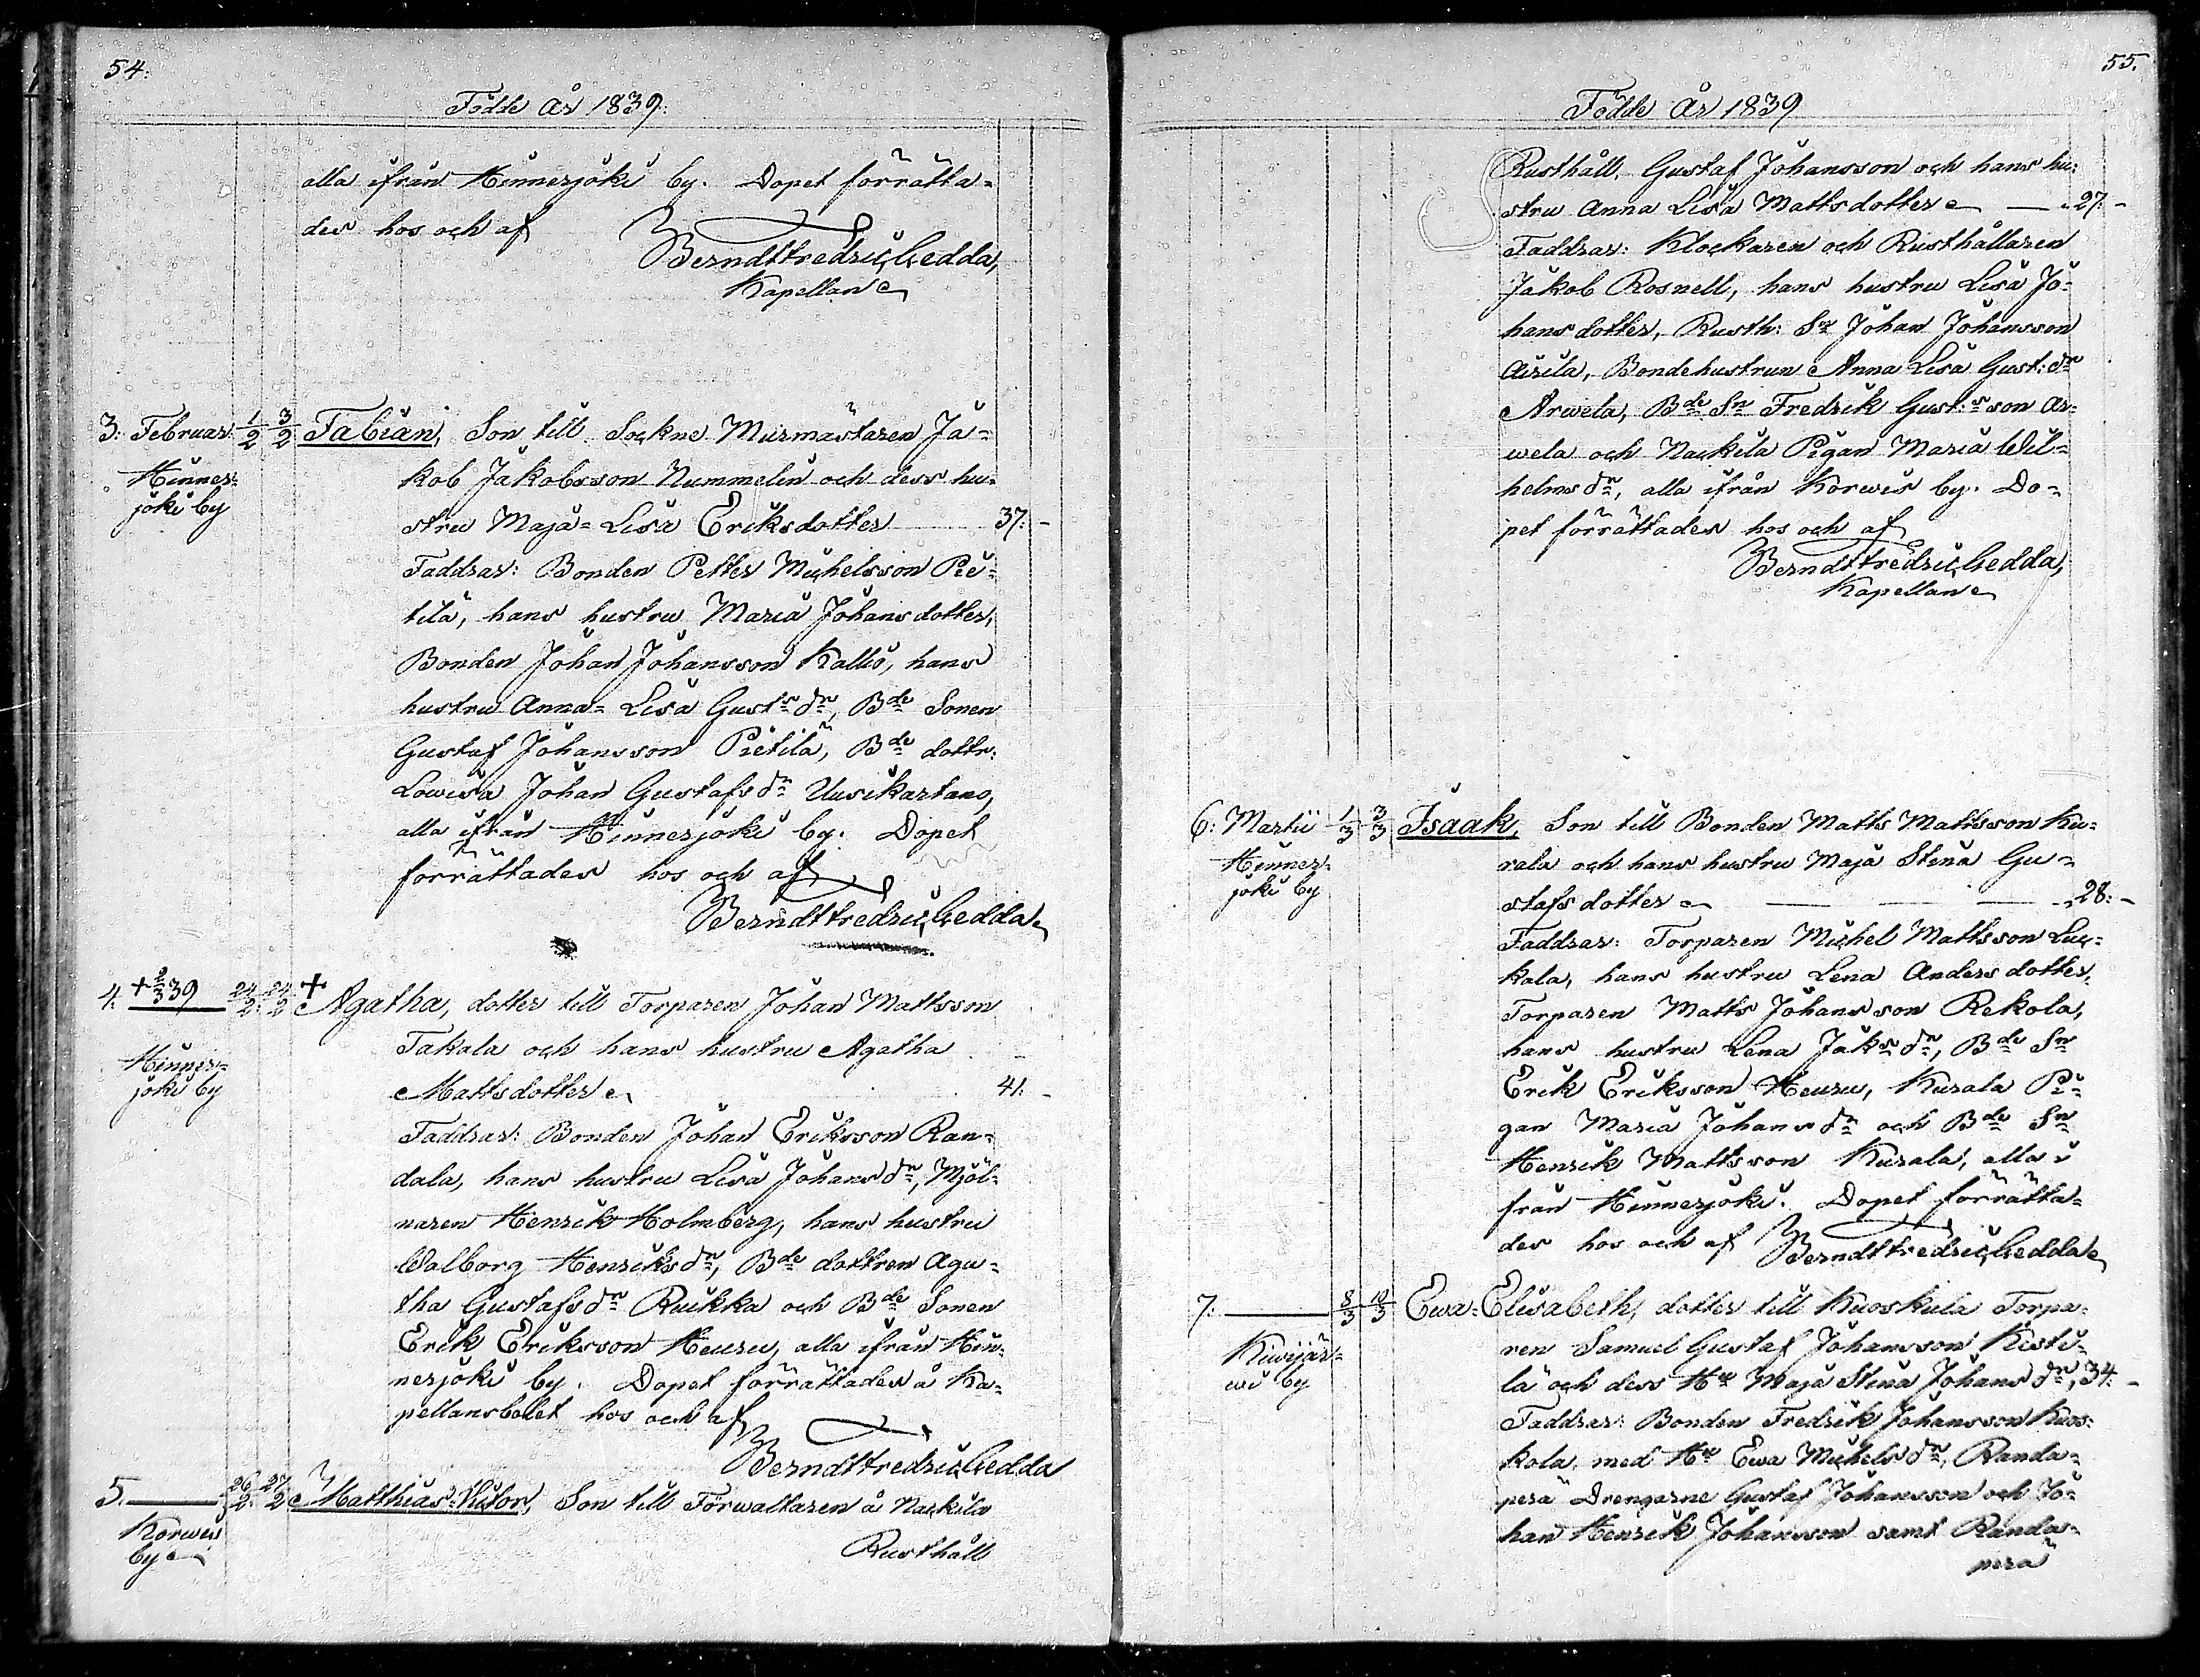 54.
Födde År 1839.
alla ifrån Hinnerjoki by. Dopet förrätta=
des hos och af
Berndt Fredric Gedda,
Kapellan
3. Februar. 1/2 3/2 Fabian, Son till Sockne Murmästaren Ja=
Hinner=
joki by
kob Jakobsson Nummelin och dess hu=
stru Maja=Lisa Eriksdotter 37.
Faddrar: Bonden Petter Michelsson Pie=
tilä, hans hustru Maria Johansdotter,
Bonden Johan Johansson Kallio, hans
hustru Anna=Lisa Gusts dr, Bde Sonen
Gustaf Johansson Pietilä, Bde dottr:
Lowisa Johan Gustafs dr Uusikartano,
alla ifrån Hinnerjoki by. Dopet
förrättades hos och af
Berndt Fredric Gedda
4. + 2/3 39 24/2 24/2 + Agatha, dotter till Torparen Johan Mattsson
Hinner=
joki by
Takala och hans hustru Agatha
Mattsdotter 41.
Faddrar: Bonden Johan Eriksson Ran=
dala, hans hustru Lisa Johans dr, Mjöl=
naren Henrik Holmberg, hans hustru
Walborg Henriks dr, Bde dottren Aga=
tha Gustafs dr Ruikka och Bde Sonen
Erik Eriksson Heuru, alla ifrån Hin=
nerjoki by. Dopet förrättades å Ka=
pellansbolet hos och af
Berndt Fredric Gedda
5. 26/2 27/2 Matthias=Victor, Son till Förwaltaren å Nackila
Korwen
by
Rusthåll
55.
Födde År 1839
Rusthåll, Gustaf Johansson och hans hu=
stru Anna Lisa Mattsdotter 27.
Faddrar: Klockaren och Rusthållaren
Jakob Rosnell, hans hustru Lisa Jo=
hansdotter, Rusth: Sn Johan Johansson
Airila, Bondehustrun Anna Lisa Gust: dr
Arwela, Bde Sn Fredrik Gust:s son Ar=
wela och Nackila Pigan Maria Wil=
helms dr, alla ifrån Korwis by. Do=
pet förrättades hos och af
Berndt Fredric Gedda,
Kapellan
6. Martii 1/3 3/3 Isaak, Son till Bonden Matts Mattsson Ku=
Hinner=
joki by
rala och hans hustru Maja Stina Gu=
stafsdotter 28.
Faddrar: Torparen Michel Mattsson Luc=
kala, hans hustru Lena Andersdotter,
Torparen Matts Johansson Rekola,
hans hustru Lena Jaks dr, Bde Sn
Erik Eriksson Heuru, Kurala Pi=
gan Maria Johans dr och Bde Sn
Henrik Mattsson Kurala, alla i
från Hinnerjoki. Dopet förrätta=
des hos och af Berndt Fredric Gedda
7. 8/3 10/3 Ewa=Elisabeth, dotter till Kuoskula Torpa=
Kiwijär=
wi by
ren Samuel Gustaf Johansson Kisti=
lä och dess Hu Maja Stina Johans dr, 34.
Faddrar: Bonden Fredrik Johansson Kuos=
kola med Hu Ewa Michels dr, Randa=
perä Drengarne Gustaf Johansson och Jo=
han Henrik Johansson samt Randa=
perä